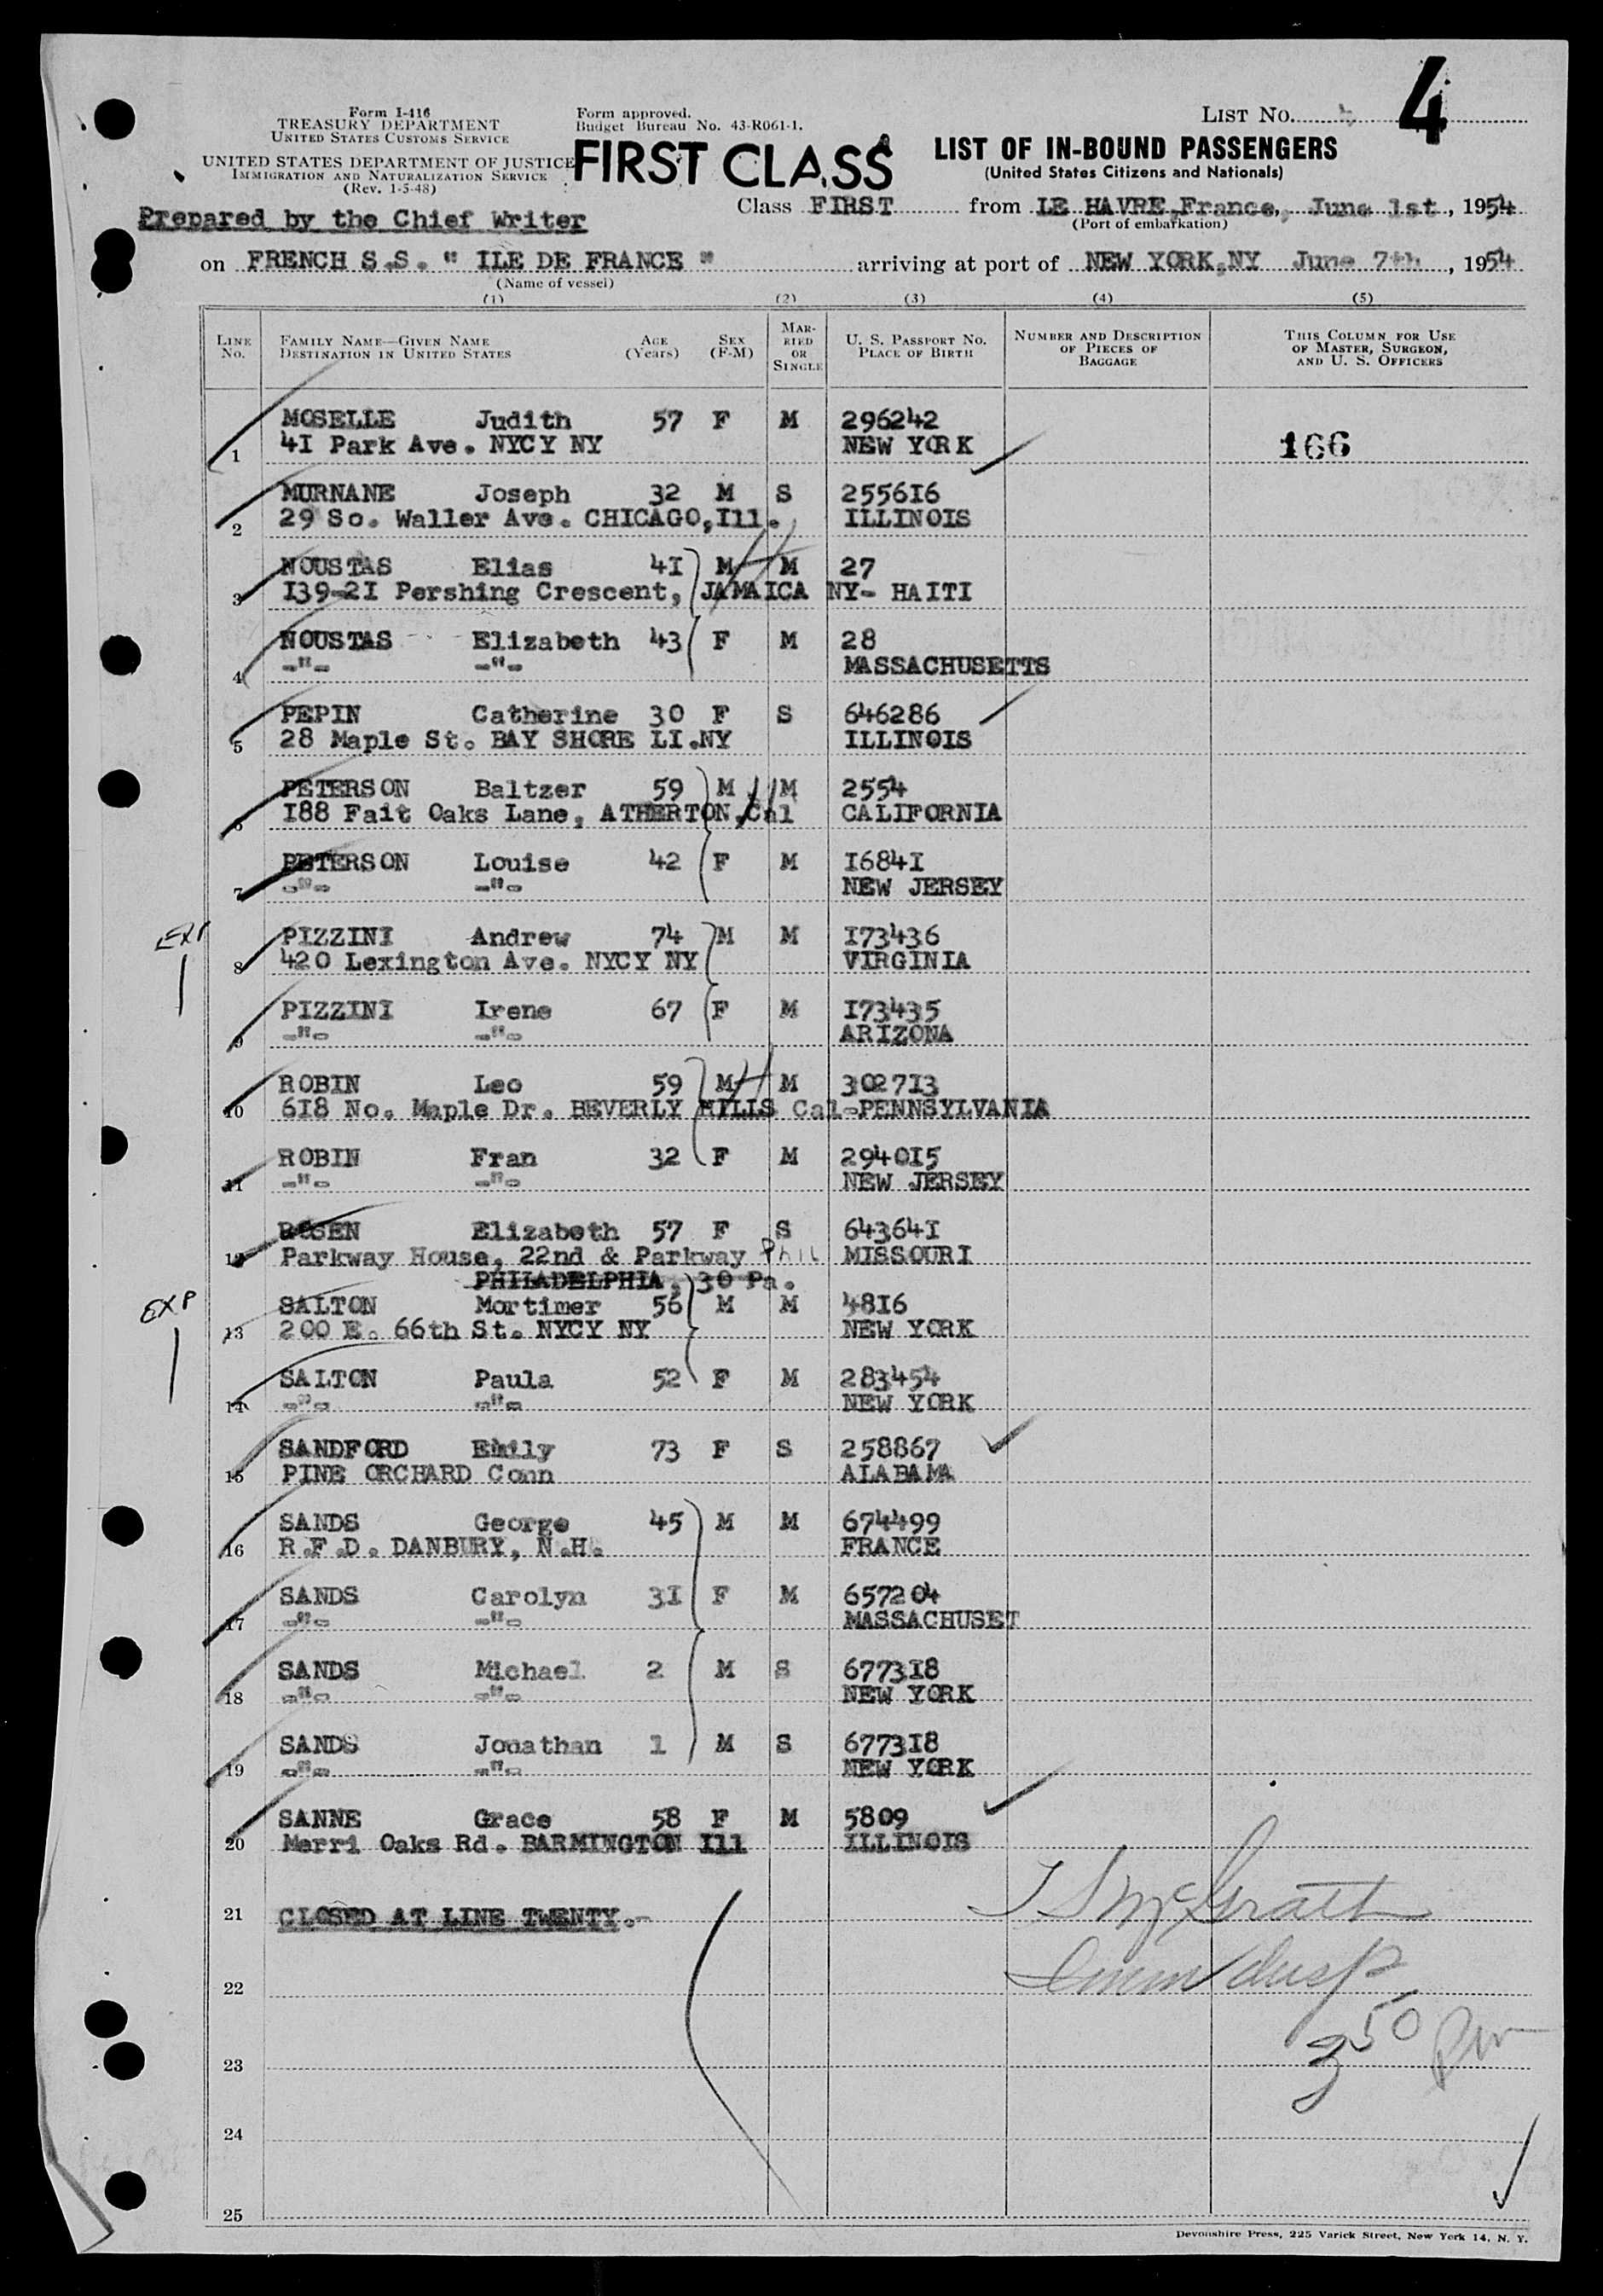 4
LIST No.
Form I-416
TREASURY DEPARTMENT
UNITED STATES CUSTOMS SERVICE
UNITED STATES DEPARTMENT OF JUSTICE
IMMIGRATION AND NATURALIZATION SERVICE
(Rev. 1-5-48)
Form approved.
Budget Bureau No. 43-R061-1.
FIRST CLASS
LIST OF IN-BOUND PASSENGERS
(United States Citizens and Nationals)
Prepared by the Chief Writer
Class FIRST from LE HAVRE,France, June 1st, 1954
(Port of embarkation)
on FRENCH S.S. " ILE DE FRANCE " arriving at port of NEW YORK,NY June 7th, 1954
(Name of vessel)
(1) (2) (3) (4) (5)
LINE No. FAMILY NAME—GIVEN NAME DESTINATION IN UNITED STATES AGE (Years) SEX (F-M) MARRIED OR SINGLE U. S. PASSPORT No. PLACE OF BIRTH NUMBER AND DESCRIPTION OF PIECES OF BAGGAGE THIS COLUMN FOR USE OF MASTER, SURGEON, AND U. S. OFFICERS
MOSELLE Judith 57 F M 296242
1 41 Park Ave. NYCY NY NEW YORK 166
MURNANE Joseph 32 M S 255616
2 29 So. Waller Ave. CHICAGO,Ill. ILLINOIS
NOUSTAS Elias 41 M M 27
3 139-21 Pershing Crescent, JAMAICA NY- HAITI
NOUSTAS Elizabeth 43 F M 28
4 -"- -"- MASSACHUSETTS
PEPIN Catherine 30 F S 646286
5 28 Maple St. BAY SHORE LI.NY ILLINOIS
PETERSON Baltzer 59 M M 2554
6 188 Fait Oaks Lane, ATHERTON,Cal CALIFORNIA
PETERSON Louise 42 F M 16841
7 -"- -"- NEW JERSEY
EXP PIZZINI Andrew 74 M M 173436
8 420 Lexington Ave. NYCY NY VIRGINIA
PIZZINI Irene 67 F M 173435
9 -"- -"- ARIZONA
ROBIN Leo 59 M M 302713
10 618 No. Maple Dr. BEVERLY HILLS Cal-PENNSYLVANIA
ROBIN Fran 32 F M 294015
11 -"- -"- NEW JERSEY
ROSEN Elizabeth 57 F S 643641
12 Parkway House, 22nd & Parkway Phil MISSOURI
PHILADELPHIA, 30 Pa.
EXP SALTON Mortimer 56 M M 4816
13 200 E. 66th St. NYCY NY NEW YORK
SALTON Paula 52 F M 283454
14 -"- -"- NEW YORK
SANDFORD Emily 73 F S 258867
15 PINE ORCHARD Conn ALABAMA
SANDS George 45 M M 674499
16 R.F.D. DANBURY, N.H. FRANCE
SANDS Carolyn 31 F M 657204
17 -"- -"- MASSACHUSET
SANDS Michael 2 M S 677318
18 -"- -"- NEW YORK
SANDS Jonathan 1 M S 677318
19 -"- -"- NEW YORK
SANNE Grace 58 F M 5809
20 Merri Oaks Rd. BARMINGTON Ill ILLINOIS
21 CLOSED AT LINE TWENTY.-
McGrath
22 Imm Insp
350 pm
23
24
25
Devonshire Press, 225 Varick Street, New York 14, N. Y.